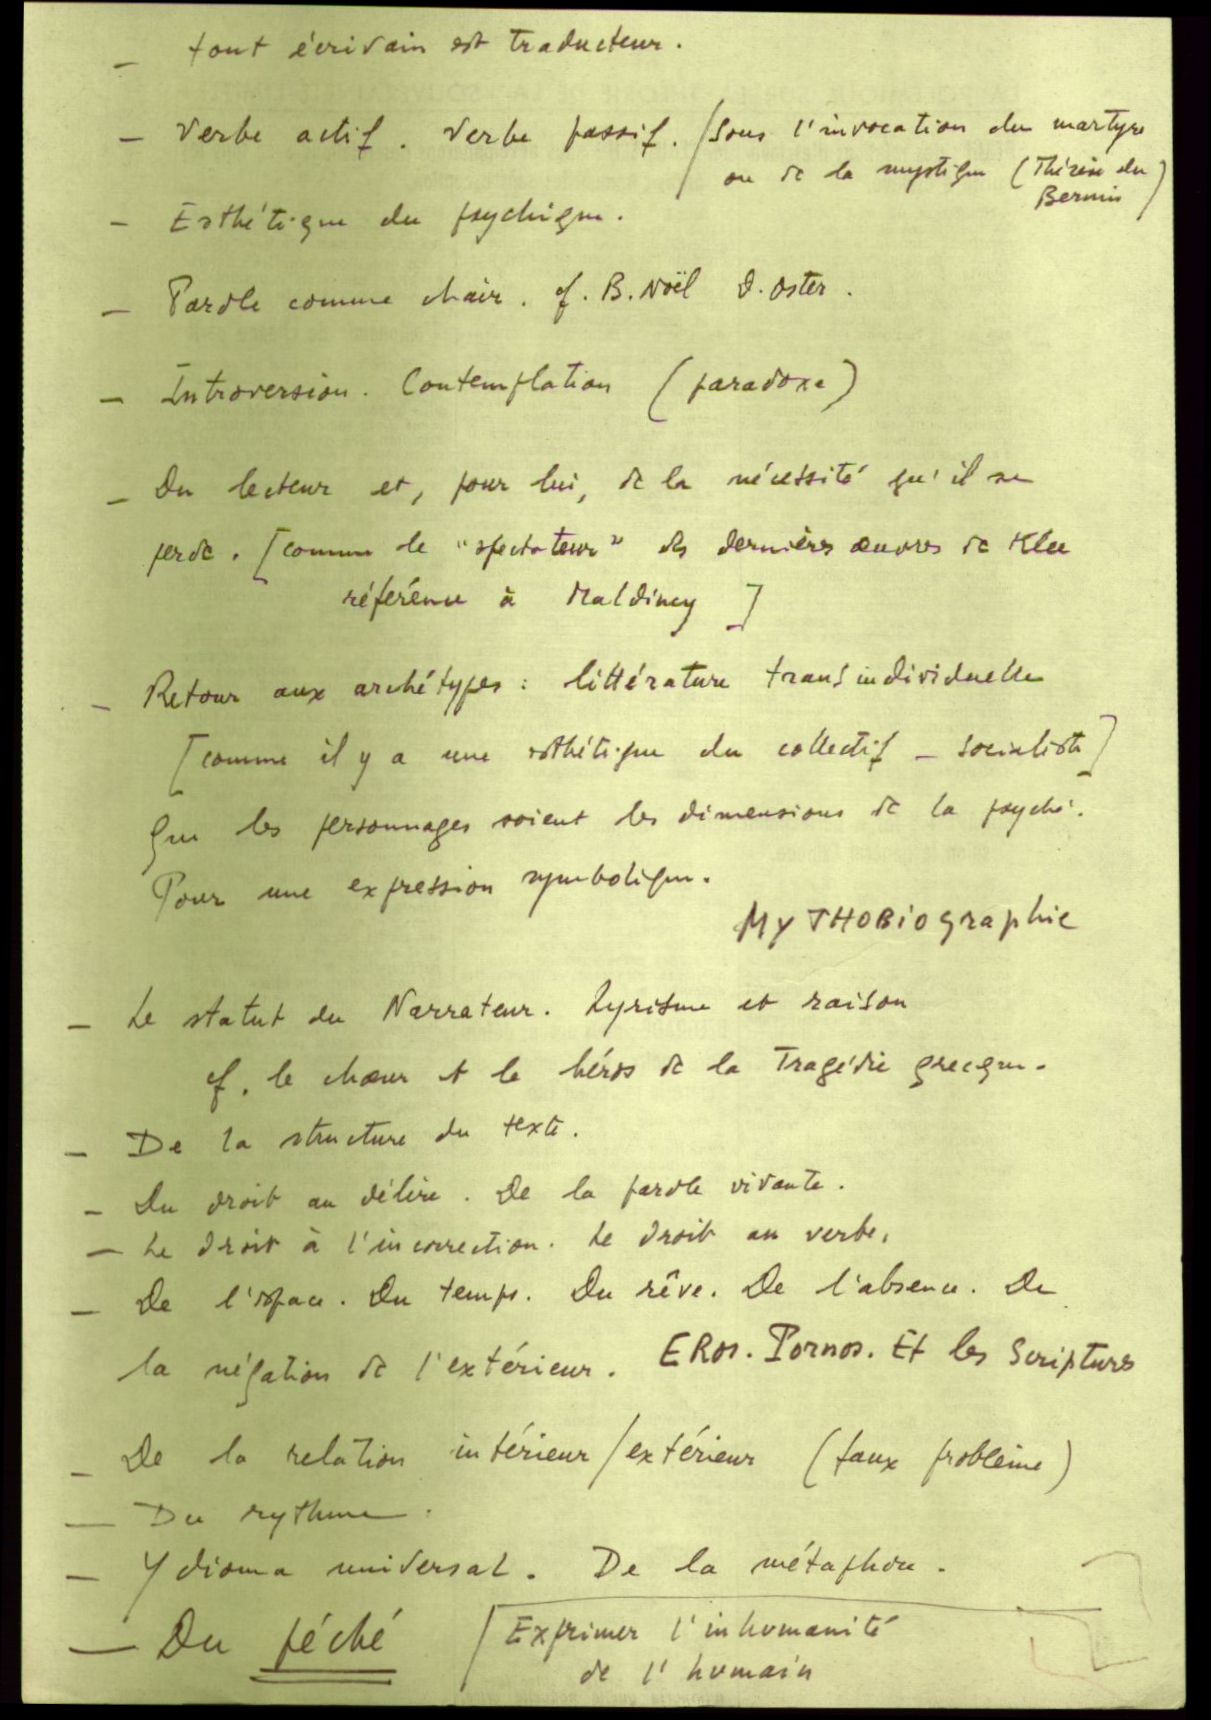 — tout écrivain est traducteur.
— Verbe actif. Verbe passif. / Sous l'invocation du martyre
ou de la mystique (Thérèse du
Bernin)
— Esthétique du psychique.
— Parole comme chair. cf. B. Noël D. Oster.
— Introversion. Contemplation (paradoxe)
— Du lecteur et, pour lui, de la nécessité qu'il se
perde. [comme le "spectateur" des dernières œuvres de Klee
référence à Maldiney]
— Retour aux archétypes : littérature transindividuelle
[comme il y a une esthétique du collectif – socialiste]
Que les personnages soient les dimensions de la psyché.
Pour une expression symbolique.
MyTHOBiographie
— Le statut du Narrateur. Lyrisme et raison
cf. le chœur et le héros de la Tragédie grecque.
— De la structure du texte.
— Du droit au délire. De la parole vivante.
— Le droit à l'incorrection. Le droit au verbe.
— De l'espace. Du temps. Du rêve. De l'absence. De
la négation de l'extérieur. ERos. Pornos. Et les Scriptures
— De la relation intérieur/extérieur (faux problème)
— Du rythme.
— Ydioma universal. De la métaphore.
— Du péché / Exprimer l'inhumanité
de l'humain